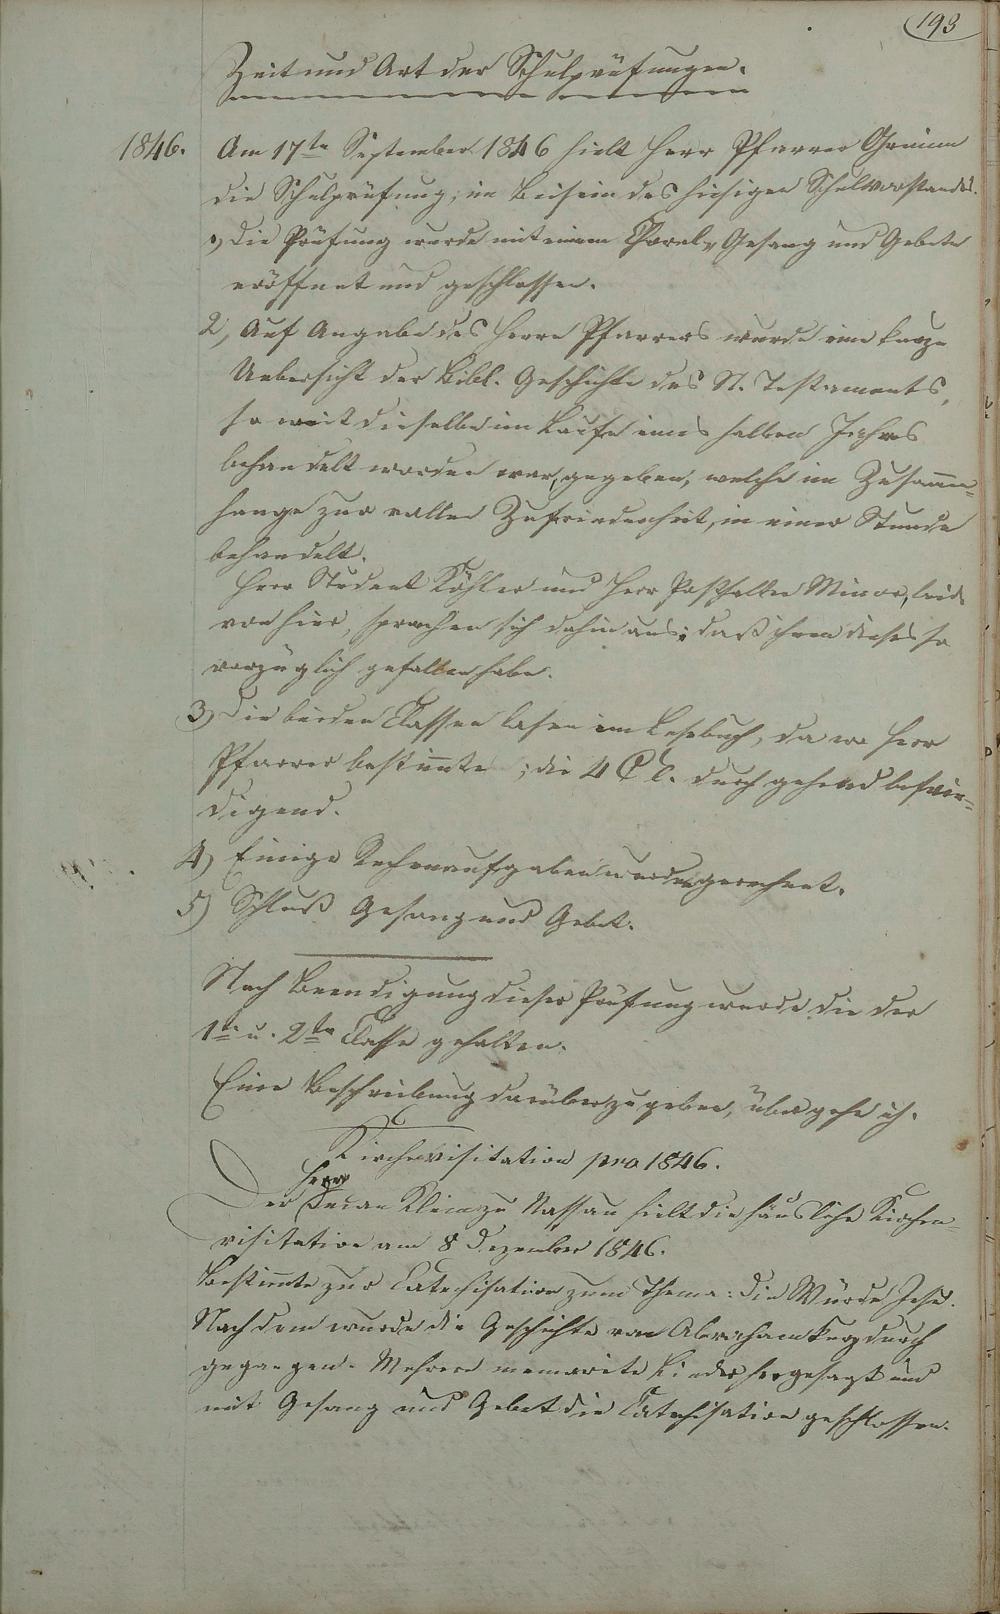 193
Zeit und Art der Schulprüfungen.
1846. Am 17te September 1846 hielt Herr Pfarrer Grimm
die Schulprüfung, im Beisein des hiesigen Schulvorstandes.
1, Die Prüfung wurde mit einem Choral, Gesang und Gebete
eröffnet und geschlossen.
2, Auf Angabe des Herrn Pfarrers wurde eine kurze
Uebersicht der bibl. Geschichte des N. Testaments,
so weit dieselbe im Laufe eines halben Jahres
behandelt worden war, gegeben, welche im Zusamen=
hange zur vollen Zufriedenheit, in einer Stunde
behandelt.
Herr Student Köhler und Herr Posthalter Minor, beide
von hier, sprachen sich dahin aus; daß ihnen dieses so
vorzüglich gefallen habe.
3) Die beiden Classen lasen im Lesebuch, da wo Herr
Pfarrer bestimte; die 4 Cl. durchgehend befrie=
digend.
4) Einige Rechenaufgaben wurden gerechnet.
5) Schluß Gesang und Gebet.
Nach Beendigung dieser Prüfung wurde die der
1te u. 2te Classe gehalten.
Eine Beschreibung darüber zu geben, übergehe ich.
Kirchenvisitation pro 1846.
Herr
Der Decan Klein zu Nassau hielt die häusliche Kirchen=
visitation am 8 Dezember 1846.
Bestimte zur Catechisation zum Thema: die Würde Jesu.
Nachdem wurde die Geschichte von Abraham kurz durch
gegangen. Mehrere memorirte Lieder hergesagt und
mit Gesang und Gebet die Catechisation geschlossen.